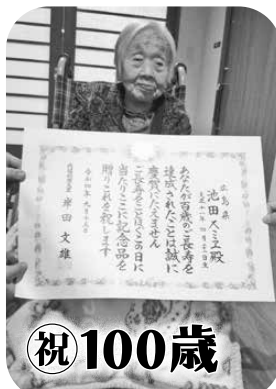 広島県
池田スミヱ殿
大正十一年四月二十日生
あなたが百歳のご長寿を
達成されたことは誠に
慶賀にたえません
ここに長寿をことほぐこの日に
当たりここに記念品を
贈りこれを祝します
令和四年九月十五日
内閣総理大臣 岸田文雄
㊗100歳